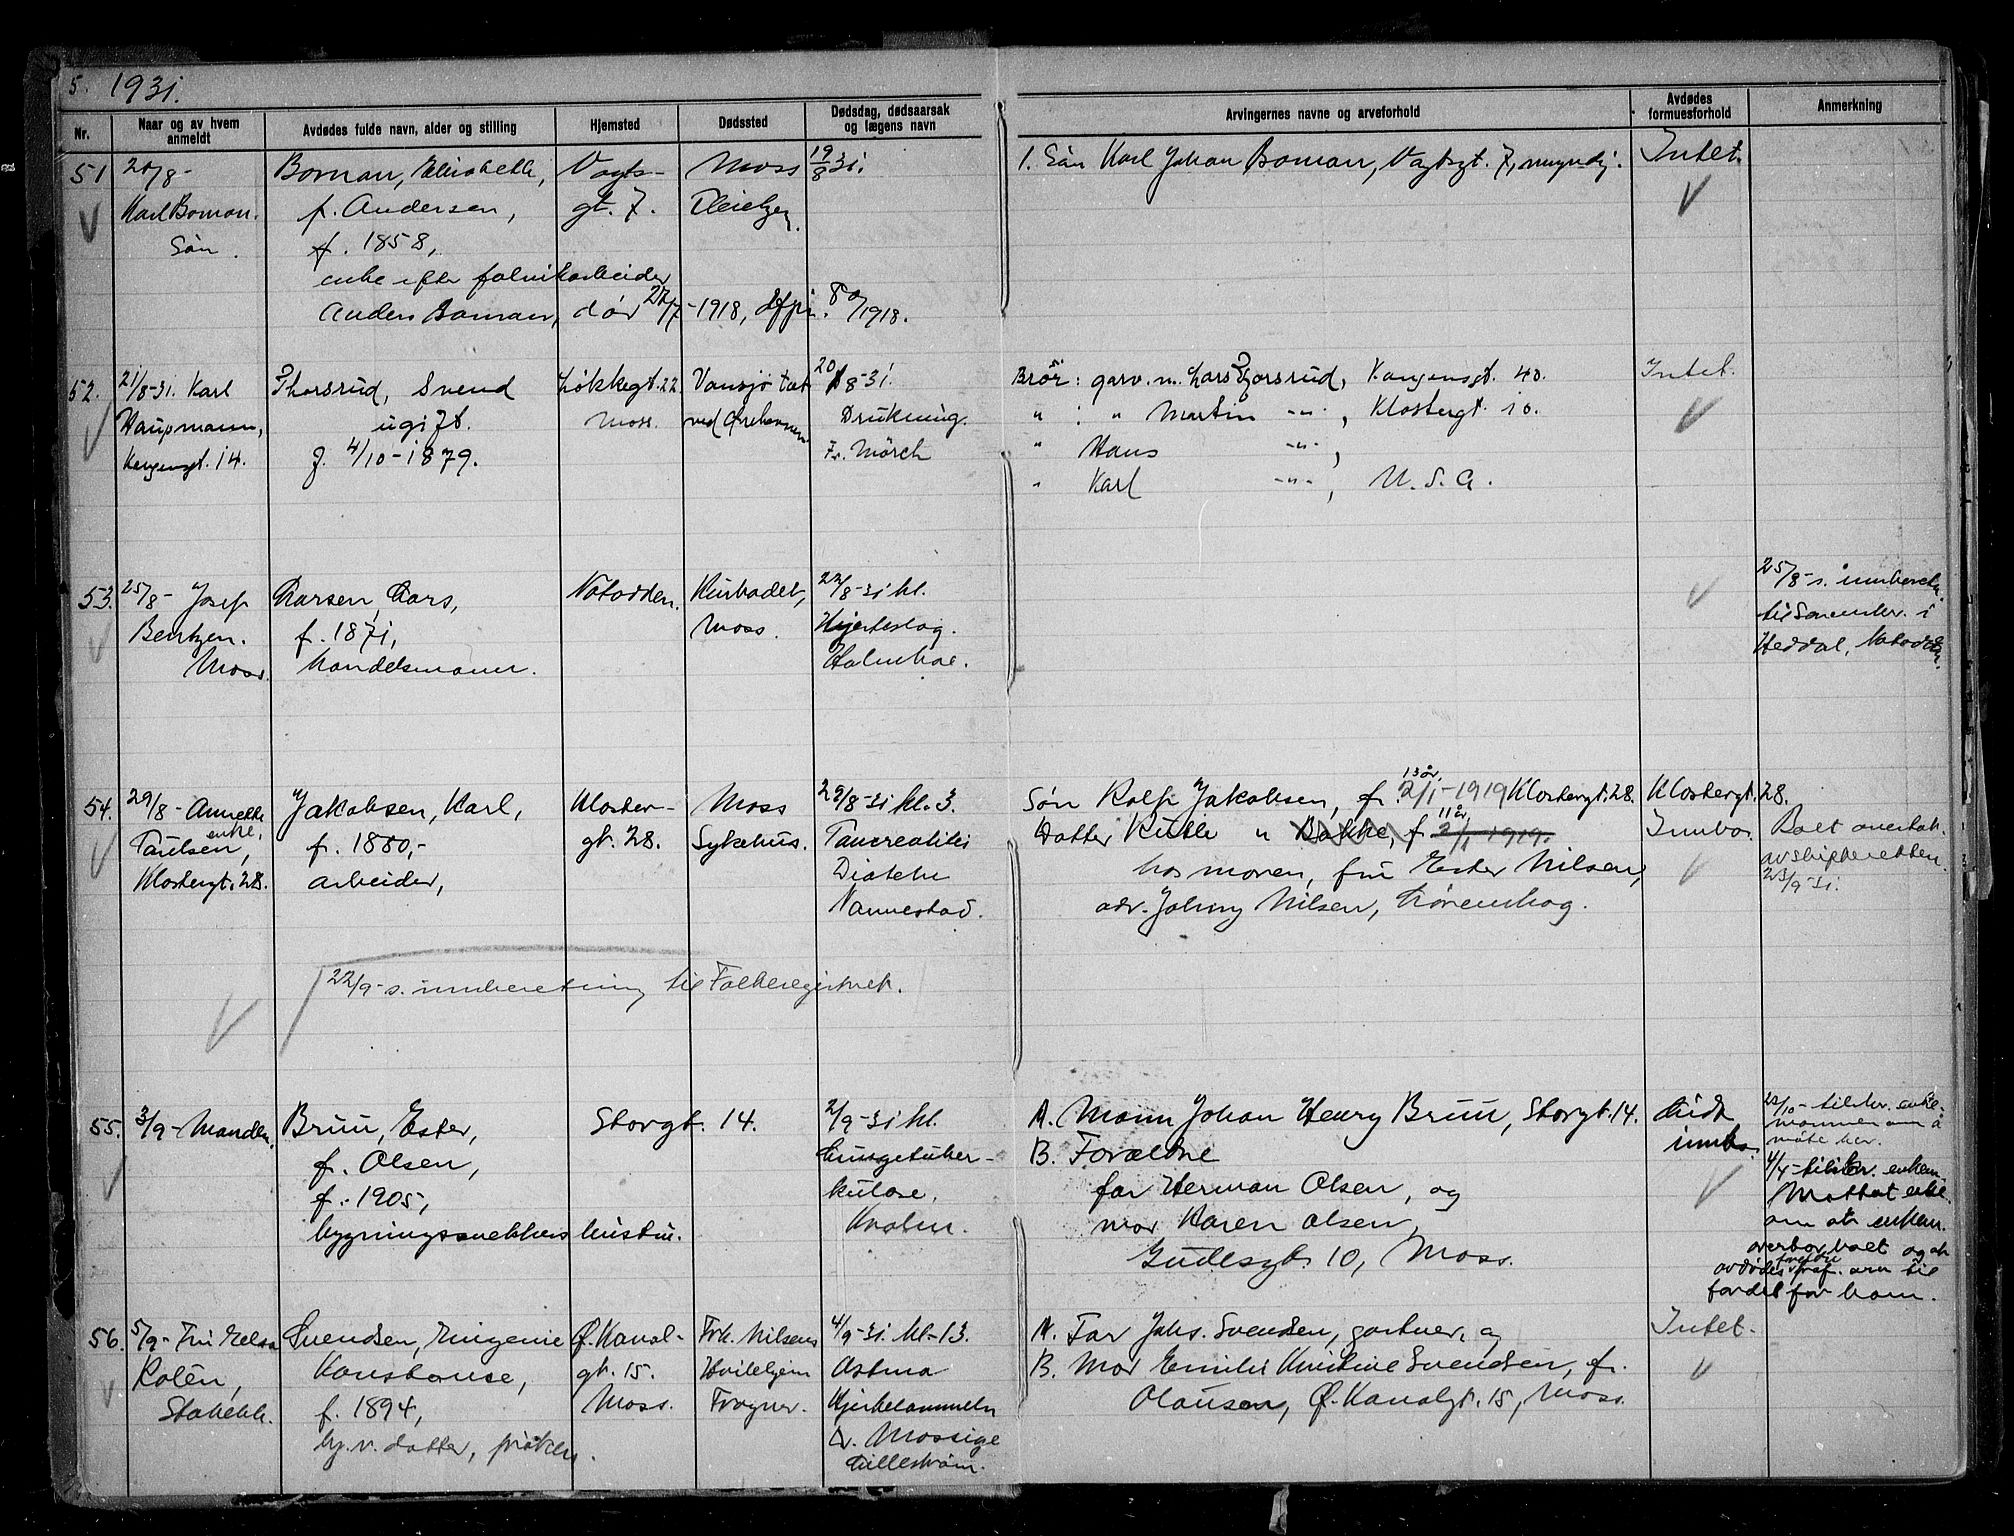 5. 1931.
Nr.
Naar og av hvem anmeldt
Avdødes fulde navn, alder og stilling
Hjemsted
Dødssted
Dødsdag, dødsaarsak og lægens navn
Arvingernes navne og arveforhold
Avdødes formuesforhold
Anmerkning
51
20/8-
Karl Boman.
Søn.
Boman, Elisabeth,
f. Andersen,
f. 1858,
enke efter fabrikarbeider
Anders Boman, død 22/7-1918,
80/1918.
Vogts-
gt. 7.
Moss
Pleiehjem
19/8 31.
1. Søn Karl Johan Boman, Vogtsgt. 7, myndig.
Intet.
52.
21/8-31. Karl
Haupmann,
Kongensgt. 14.
Thorsrud, Svend
ugift.
f. 4/10-1879.
Løkkegt. 22
Moss.
Vansjø tæt
ved
20/8-31.
Drukning.
Fr. Mörch
Brør: garv. m. Lars Thorsrud, Kongensgt. 40.
" : " Martin -"-, Klostergt. 10.
" Hans -"-,
" Karl -"-, U.S.A.
Intet.
53.
25/8- Josef
Bentzen.
Moss.
Larsen, Lars,
f. 1871,
Handelsmann.
Notodden.
Kurbadet,
Moss.
22/8-31 kl.
Hjerteslag.
Holmboe.
25/8-s. innberetn.
til Sorenskr. i
Heddal, Notodden.
54.
29/8- Annette
enke.
Paulsen,
Klostergt. 28.
Jakobsen, Karl,
f. 1880,-
arbeider,
Kloster-
gt. 28.
Moss
Sykehus.
29/8-31 kl. 3.
Pancreatitis
Nannestad.
13 år.
Søn Rolf Jakobsen, f. 2/1-1919 Klostergt. 28.
11 år
Datter Ruth " Bakke, f. 2/1 1919.
hos moren, fru Ester Nilsen,
adr. Johny Nilsen, Lørenskog.
Klostergt. 28.
Innbo.
Boet overtat.
av skifteretten.
23/9-31.
22/9-s. innberetning til Folkeregistret.
55.
3/9- Manden.
Bruu, Ester,
f. Olsen,
f. 1905,
bygningssnekkers hustru.
Storgt. 14.
2/9-31 kl.
Lungetuber-
kulose.
Kvalen.
A. Mann Johan Henry Bruu, Storgt. 14.
B. Forældre
far Herman Olsen, og
mor Karen Olsen,
Gudesgt. 10, Moss.
Lidt
innbo.
22/10- tilskr. enke-
mannen om å
møte her.
4/4- tilskr. enkem.
Mottat erkl.
om at enkem.
overtar boet og at
avdødes foreldre fraf. arv til
fordel for ham.
56.
5/9- Fru Elsa
Rolén,
Stabekk.
Svendsen, Eugenie
Konstanse,
f. 1894,
hj.v. datter, frøken.
Ø. Kanal-
gt. 15.
Moss.
Frk. Nilsens
Hvilehjem
Frogner.
4/9-31. kl-13.
Astma
Hjertelammelse
Dr. Mossige
Lillestrøm.
A. Far Johs. Svendsen, gartner, og
B. Mor Emilie Kristine Svendsen, f.
Olausen, Ø. Kanalgt. 15, Moss.
Intet.